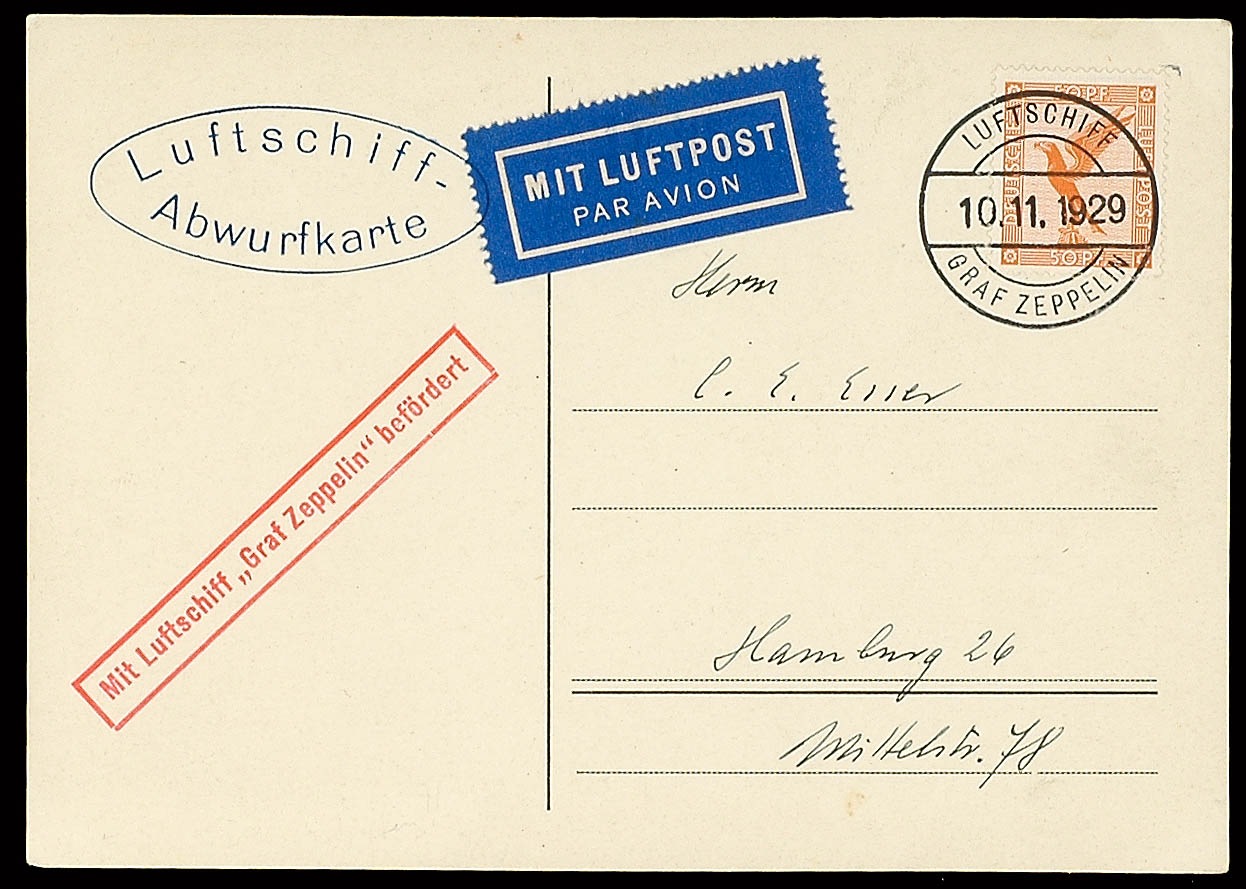 Luftschiff-
Abwurfkarte
MIT LUFTPOST
PAR AVION
50 PF.
DEUTSCHE
LUFTPOST
50 PF.
LUFTSCHIFF
10.11.1929
GRAF ZEPPELIN
Mit Luftschiff „Graf Zeppelin“ befördert
Herrn
C. E. Esser
Hamburg 26
Mittelstr. 78